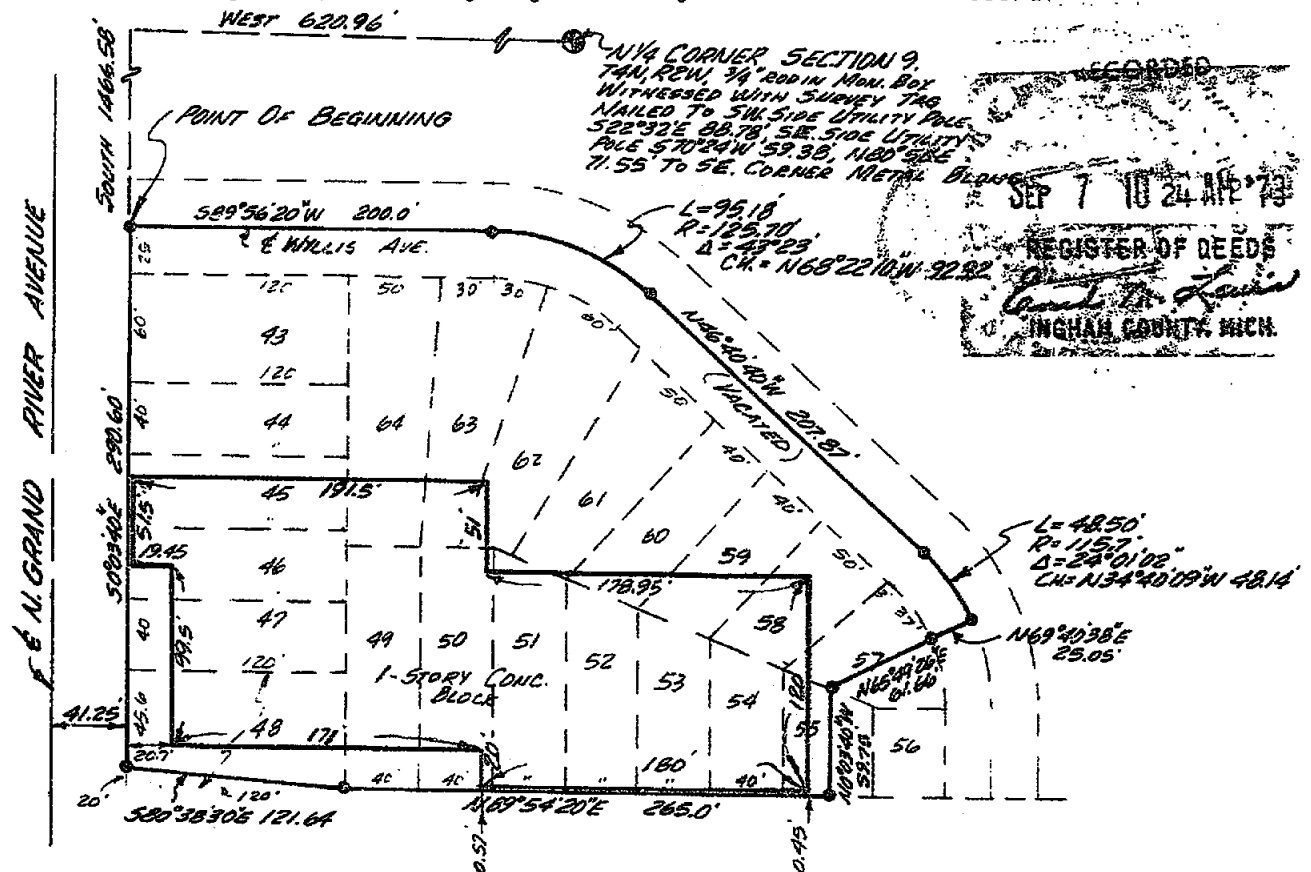 WEST 620.96'
SOUTH 1466.58'
N1/4 CORNER SECTION 9.
T4N, R2W, 3/4" ROD IN MON. BOX
WITNESSED WITH SURVEY TAG
NAILED TO SW. SIDE UTILITY POLE
S22°32'E 88.78', S.E. SIDE UTILITY
POLE S70°24'W 59.38', N80°56'E
71.55' TO SE. CORNER METAL BLDNG
RECORDED
SEP 7 10 24 AM '73
REGISTER OF DEEDS
INGHAM COUNTY, MICH.
POINT OF BEGINNING
S89°56'20"W 200.0'
℄ WILLIS AVE.
L=95.18'
R=125.70'
Δ=43°23'
CH.= N68°22'10"W 92.92
N46°40'40"W 207.87'
(VACATED)
L=48.50'
R=115.7'
Δ=24°01'02"
CH= N34°40'09"W 48.14'
N69°40'38"E
25.05'
N65°49'26"E
61.66'
N0°03'40"W
59.78'
℄ N. GRAND RIVER AVENUE
S0°03'40"E 290.60'
25
60'
40
40
45.6
120
50
30
30
60'
50
40'
40'
50'
37'
43
120
44
64
63
62
61
60
59
58
57
56
55
54
53
52
51
50
49
45
191.5'
51'
51.5'
19.45
46
47
120'
48
99.5'
178.95'
1-STORY CONC.
BLOCK
120'
171'
20'
180'
40'
40'
40'
41.25'
20.7'
20'
120'
S80°38'30"E 121.64
N89°54'20"E 265.0'
0.57'
0.45'